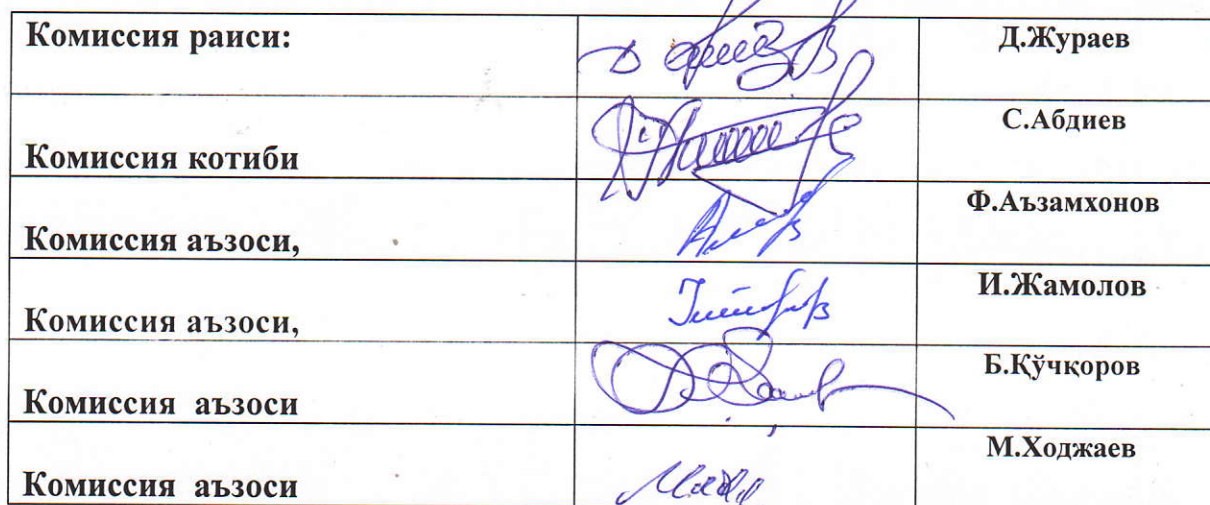 Комиссия раиси: Д.Жураев
Комиссия котиби С.Абдиев
Комиссия аъзоси, Ф.Аъзамхонов
Комиссия аъзоси, И.Жамолов
Комиссия аъзоси Б.Қўчқоров
Комиссия аъзоси М.Ходжаев